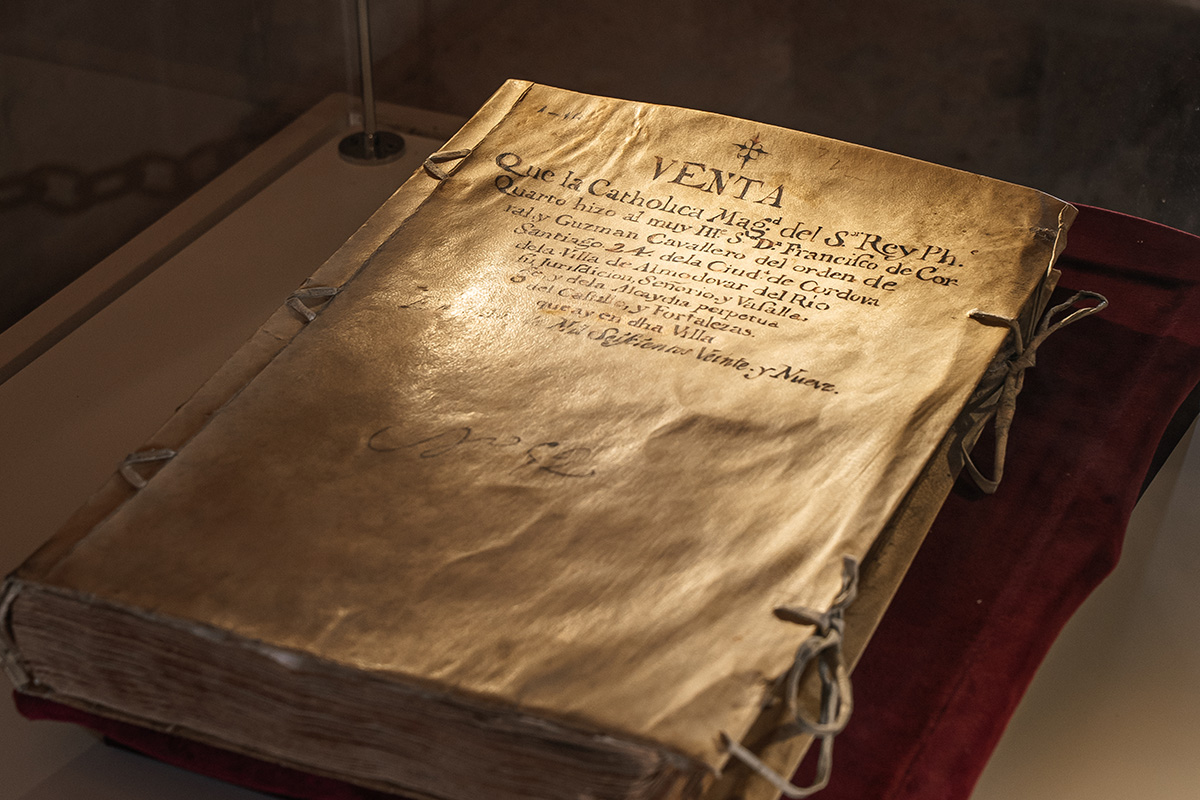 VENTA
Que la Catholica Mag.d del S.r Rey Ph.e
Quarto hizo al muy Ill.e S.r D.n Francisco de Cor
ral y Guzman Cavallero del orden de
Santiago 24. dela Ciud.d de Cordova
dela Villa de Almodovar del Rio
su Jurisdicion, Señorio, y Vasalle
y dela Alcaydia perpetua
del Castillo, y Fortalezas.
que ay en dha Villa
Mil Seiscientos Veinte, y Nueve.